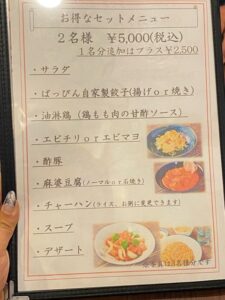 お得なセットメニュー
2名様 ¥5,000(税込)
1名分追加はプラス¥2,500
・サラダ
・ぱっぴん自家製餃子(揚げor焼き)
・油淋鶏(鶏もも肉の甘酢ソース)
・エビチリorエビマヨ
・酢豚
・麻婆豆腐(ノーマルor石焼き)
・チャーハン(ライス、お粥に変更できます)
・スープ
・デザート
※写真は3名様分です